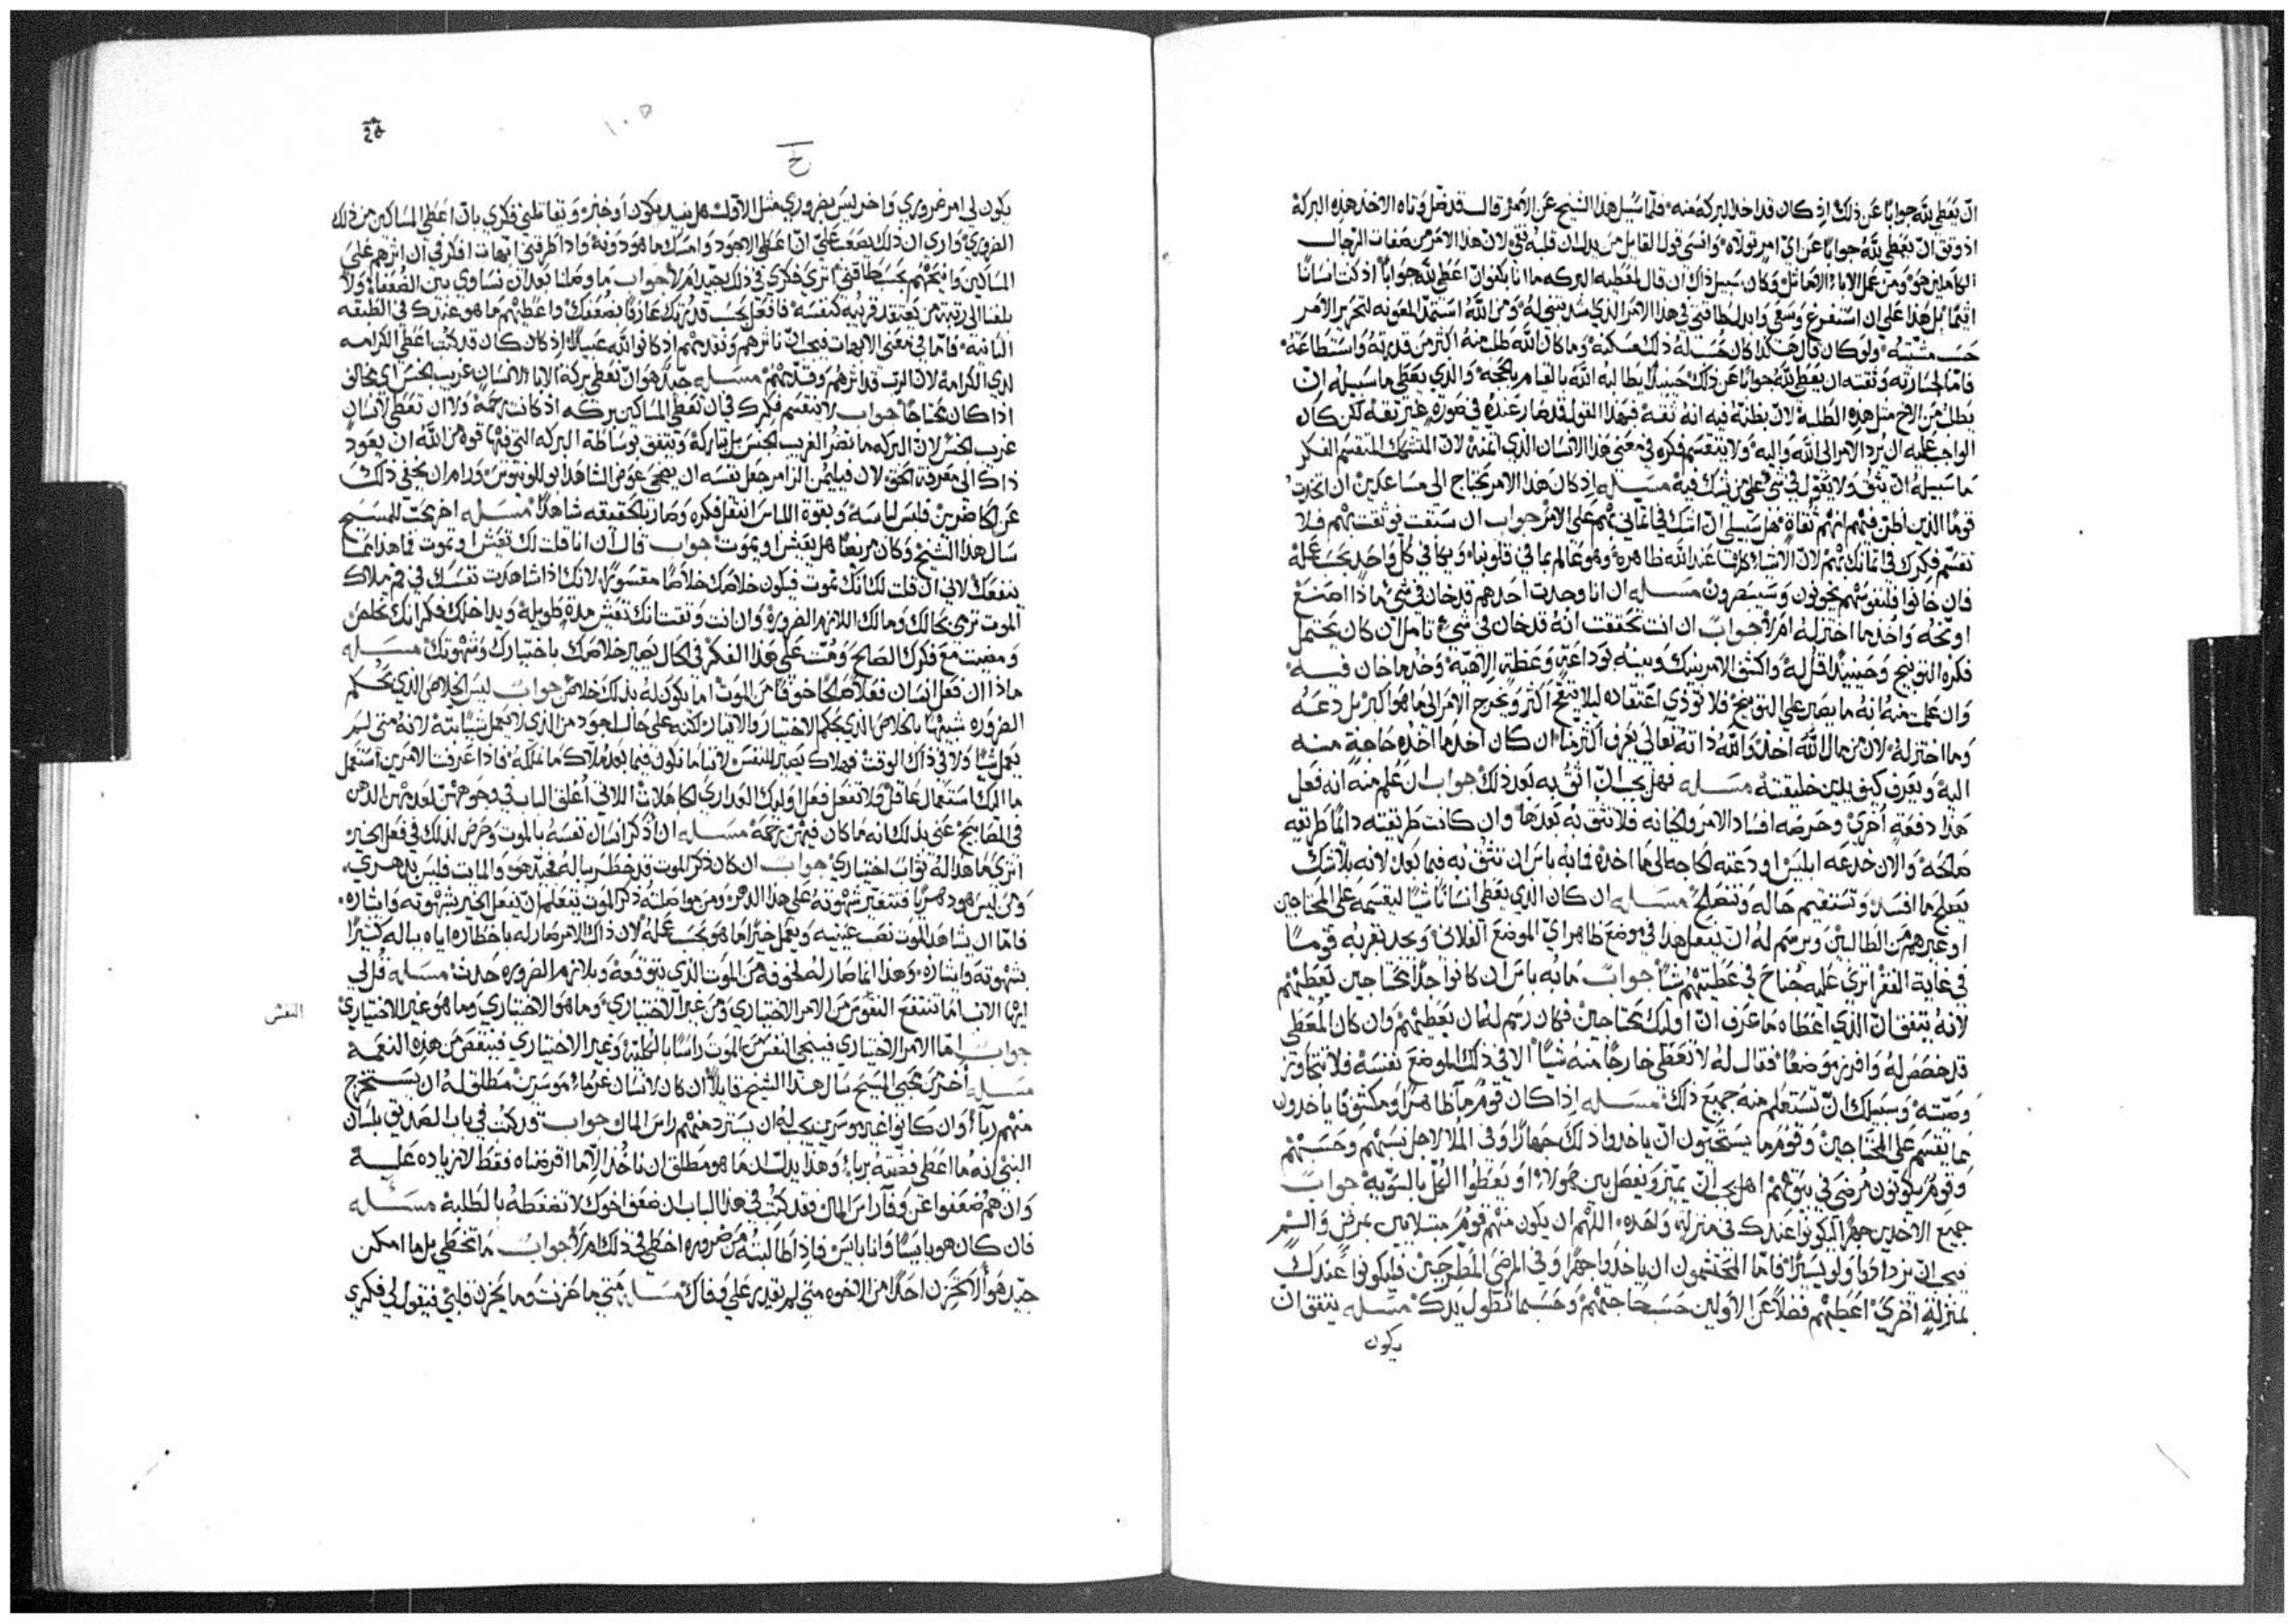 ان يعطي لله جوابًا عن ذلك اذ كان قد اخذ البركة منه فلما سيل هذا الشيخ عن الامر قال قد فضل وتاه الاخذ هذه البركة
اذ وثق ان يعطي لله جوابًا عن اي امر تولاه وانسي قول القايل من يدل ان قلبه نقي لان هذا الامر من صفات الرجال
الكاملين هو ومن عمل الاباء وكان سبيل ذاك ان قال لمعطيه البركه ما انا بكفو ان اعطي لله جوابًا اذ كنت انسانًا
اثيمًا بل هذا علي ان استفرغ وسعي وابدل طاقتي في هذا الامر الذي ومن الله استمد المعونه لتحرير الامر
حسب مشيته ولو كان قال هكذا كان حسب له ذلك مسكنة وما كان الله طلب منه اكثر من قدرته واستطاعته
فاما لجسارته وثقته ان يعطي لله جوابًا عن ذلك حينيذ يطالبه الله بالقيام بالحجه والذي يعطي ما سبيله ان
يطلب من الاخ مثل هذه الطلبة لان بظنه فيه انه ثقة فبهذا القول قد صار عنده في صوره غير ثقة لكن كان
الواجب عليه ان يرد الامر الي الله واليه ولا ينقسم فكره في معني هذا الانسان الذي ايتمنه لان المتشكك المنقسم الفكر
ما سبيله ان يثق ولا يعول في شي علي من يشك فيه مسله اذ كان هذا الامر يحتاج الي مساعدين ان اتخذت
قومًا الذين اظن فيهم انهم ثقاة هل سبيلي ان اشك في ايماني بهم علي الامر جواب ان سبقت فوثقت بهم فلا
تقسم فكرك في ايمانك بهم لان الاشياء كلها عند الله ظاهرة وهو عالم بما في قلوبنا ويكافي كل واحد بحسب عمله
فان خانوا فلنفوسهم يخونون وسيضرون مسله ان انا وجدت احدهم قد خان في شي ماذا اصنع
اوبخه واخذ ما اختزله ام لا جواب ان انت تحققت انه قد خان في شي تامل ان كان يحتمل
فكره التوبيخ وحينيذ قل له واكشف الامر بينك وبينه بوداعة وعظة الاهية وخذ ما خان فيه
وان علمت منه انه ما يصبر علي التوبيخ فلا توذي اعتقاده ليلا يتقح اكثر ويخرج الامر الي ما هو اكبر بل دعه
وما اختزله لان من مال الله اخذ والله ذاته تعالي يعرف اكثر منا ان كان اخذ ما اخذه حاجة منه
اليه ويعرف كيف يلين خليقته مسله فهل يجب ان اثق به بعد ذلك جواب ان علم منه انه فعل
هذا دفعة اخري وحرصه افساد الامر والخيانه فلا تثق به بعدها وان كانت طريقته دايمًا طريقه
صالحة والان خدعه ابليس او دعته الحاجه الي ما اخذه فما به باس ان تثق به فيما بعد لانه بلا شك
يصلح ما افسد وتستقيم حاله وتنصلح مسله ان كان الذي يعطي انسانًا شيًا ليقسمه علي المحتاجين
او غيرهم من الطالبين ويرسم له ان يفعل هذا في موضع ظاهر اي الموضع الفلاني ويجد بقربه قومًا
في غاية الفقر اتري عليه جناح في عطيتهم شيًا جواب ما به باس ان كانوا جدًا محتاجين يعطيهم
لانه يتفق ان الذي اعطاه ما عرف ان اوليك محتاجين فكان رسم له ان يعطيهم وان كان المعطي
قد خصص له وافرز موضعًا فقال له لا تعطي خارجًا منه شيًا الا في ذلك الموضع نفسه فلا تتجاوز
وصيته وسبيلك ان تستعلم منه جميع ذلك مسله اذا كان قوم ما ظاهرًا ومكشوفًا ياخذون
مما يقسم علي المحتاجين وقوم ما يستحيون ان ياخذوا ذلك جهارًا وفي الملا لاجل نسبهم وحسبهم
وقوم يكونون مرضي في بيوتهم اهل يجب ان يميز ويفصل بين هولاء او يعطوا الكل بالسويه جواب
جميع الاخذين جهرًا ليكونوا عندك في منزلة واحده اللهم ان يكون منهم قوم مبتلايين بمرض والسم
فيجب ان يزدادوا ولو يسيرًا فاما المحتشمون ان ياخذوا جهرًا وفي المرضي المطرحين فليكونوا عندك
بمنزلة اخري اعطيهم فضلاً عن الاولين حسب حاجتهم وحسبما تطول يدك مسله يتفق ان
يكون
١٠٥
ح
يكون لي امر ضروري واخر ليس بضروري مثل الاول هل نبيد يكون او خبز ويقاتلني فكري بان اعطي المساكين من ذلك
الضروري واري ان ذلك يصعب علي ان اعطي الاجود وامسك ما هو دونه واذا طرقني ابهات افكر في ان اثرهم علي
المساكين وانيحهم بحسب طاقتي اتري فكري في ذلك جيد ام لا جواب ما وصلنا بعد ان نساوي بين الضعفاء ولا
بلغنا الي رتبة من يعتقد قريبه كنفسه فافعل بحسب قدرتك عارفًا بضعفك واعطيهم ما هو عندك في الطبقه
الثانية فاما في معني الابهات فيجب ان تاثرهم وتقدمهم اذ كانوا لله عبيدًا اذ كان كان قد كتب اعطي الكرامه
لذي الكرامة لان الرب قد اثرهم وقدمهم مسله جيد هو ان يعطي بركة الاباء لانسان غريب الجنس اي مخالف
اذا كان محتاجًا جواب لا ينقسم فكرك في ان تعطي المساكين بركه اذ كانت رحمة ولا ان تعطي لانسان
غريب الجنس لان البركه ما تضر الغريب الجنس بل تباركه ويتفق بوساطة البركه التي فيها قوة من الله ان يعود
ذاك الي معرفة الحق لان فيليمن الزامر جعل نفسه ان يضحي عوض الشاهد ابوللونيوس ورام ان يخفي ذلك
عن الحاضرين فلبس لباسه وبقوة اللباس انتقل فكره وصار بالحقيقه شاهدًا مسله اخ محب للمسيح
سال هذا الشيخ وكان مريضًا هل يعيش او يموت جواب قال ان انا قلت لك تعيش او تموت فما هذا مما
ينفعك لاني ان قلت لك انك تموت فيكون خلاصك خلاصًا مقسورًا لانك اذا شاهدت نفسك في فم ملاك
الموت ترمي بحالك ومالك اللازم الضروره وان انت وثقت انك تعيش مدة طويلة ويداخلك فكر انك تخلص
ومضيت مع فكرك الصالح ومت علي هذا الفكر في الحال يصير خلاصك باختيارك وشهوتك مسله
ماذا ان فعل انسان فعلاً صالحًا خوفًا من الموت اما يكون له بذلك خلاص جواب ليس الخلاص الذي بحكم
الضروره شبيهًا بالخلاص الذي بحكم الاختيار والايثار لكنه علي حال اجود من الذي لا يعمل شيًا بتة لانه متي لم
يعمل شيًا ولا في ذاك الوقت فهلاك يصير للنفس لاننا ما نكون فيما بعد ملاك ما نملكه فاذا عرفت الامرين استعمل
مالك استعمال عاقل ولا تفعل فعل اوليك العداري الجاهلات اللاتي اغلق الباب في وجوههن لعدمهن الدهن
في المصابيح عني بذلك انه ما كان فيهن رحمة مسله ان اذكر انسان نفسه بالموت وحرص لذلك في فعل الخير
اتري ما هذا له ثواب اختياري جواب ان كان ذكر الموت قد خطر بباله فجيد هو والمايت فليس بدهري
ومن ليس هو دهريًا فتتغير شهوته علي هذا الذكر ومن مواصلته ذكر الموت يتعلم ان يفعل الخير بشهوته وايثاره
فاما ان يشاهد الموت نصب عينيه ويعمل خيرًا ما هو بحسب عمله لان ذاك الامر صار له باخطاره اياه بباله كثيرًا
بشهوته وايثاره وهذا انما صار له لخوفه من الموت الذي يتوقعه وبلازم الضروره حدث مسله قل لي
ايها الاب اما تنتفع النفوس من الامر الاختياري ومن غير الاختياري وما هو الاختياري وما هو غير الاختياري
النفس
جواب اما الامر الاختياري فينجي النفس من الموت راسًا بالكلية وغير الاختياري فينقص من هذه النعمة
مسله اخ من محبي المسيح سال هذا الشيخ قايلاً ان كان لانسان غرماء موسرين مطلق له ان يستخرج
منهم رباء وان كانوا غير موسرين يجب له ان يسترد منهم راس المال جواب قد كتب في باب الصديق بلسان
النبي انه ما اعطي فضته برباء وهذا يدل ان ما هو مطلق ان ناخذ الا ما اقرضناه فقط لا زياده عليه
وان هم ضعفوا عن وفآ راس المال فقد كتب في هذا الباب ان ضعف اخوك لا تضغطه بالطلبة مسله
فان كان هو بايسًا وانا بايس فاذا طالبته من ضروره اخطي في ذلك ام لا جواب ما تخطي بل ما امكن
جيد هو الا تحزن احدًا من الاخوه متي لم يقدر علي وفاك مسله متي ما عزنت وما يحزن قلبي فيقول لي فكري